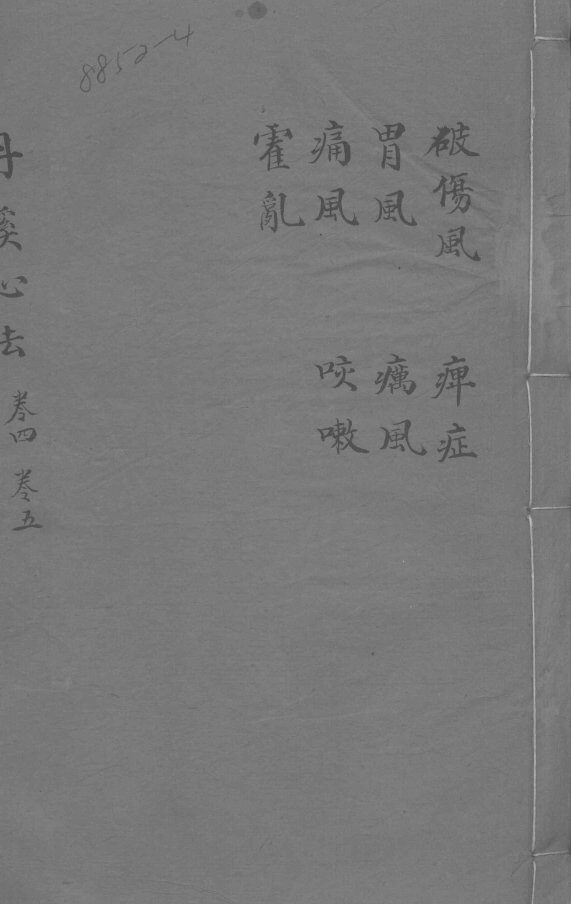 8852-4
破傷風 痺症
胃風 癘風
痛風 咳嗽
霍亂
丹溪心法 卷四 卷五